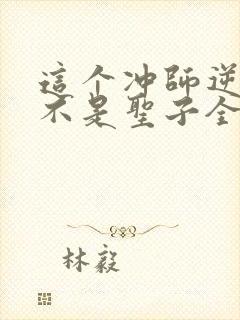 這个冲師逆
不是聖子全
林毅